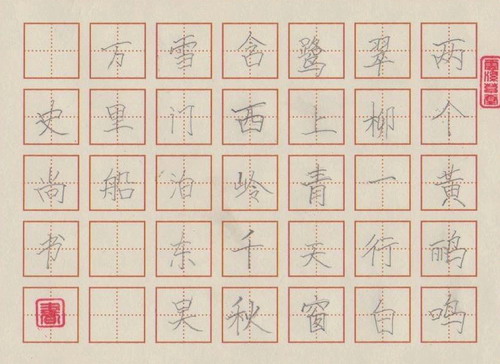 两个黄鹂鸣
翠柳一行白
鹭上青天窗
含西岭千秋
雪门泊东吴
万里船
史尚书
春